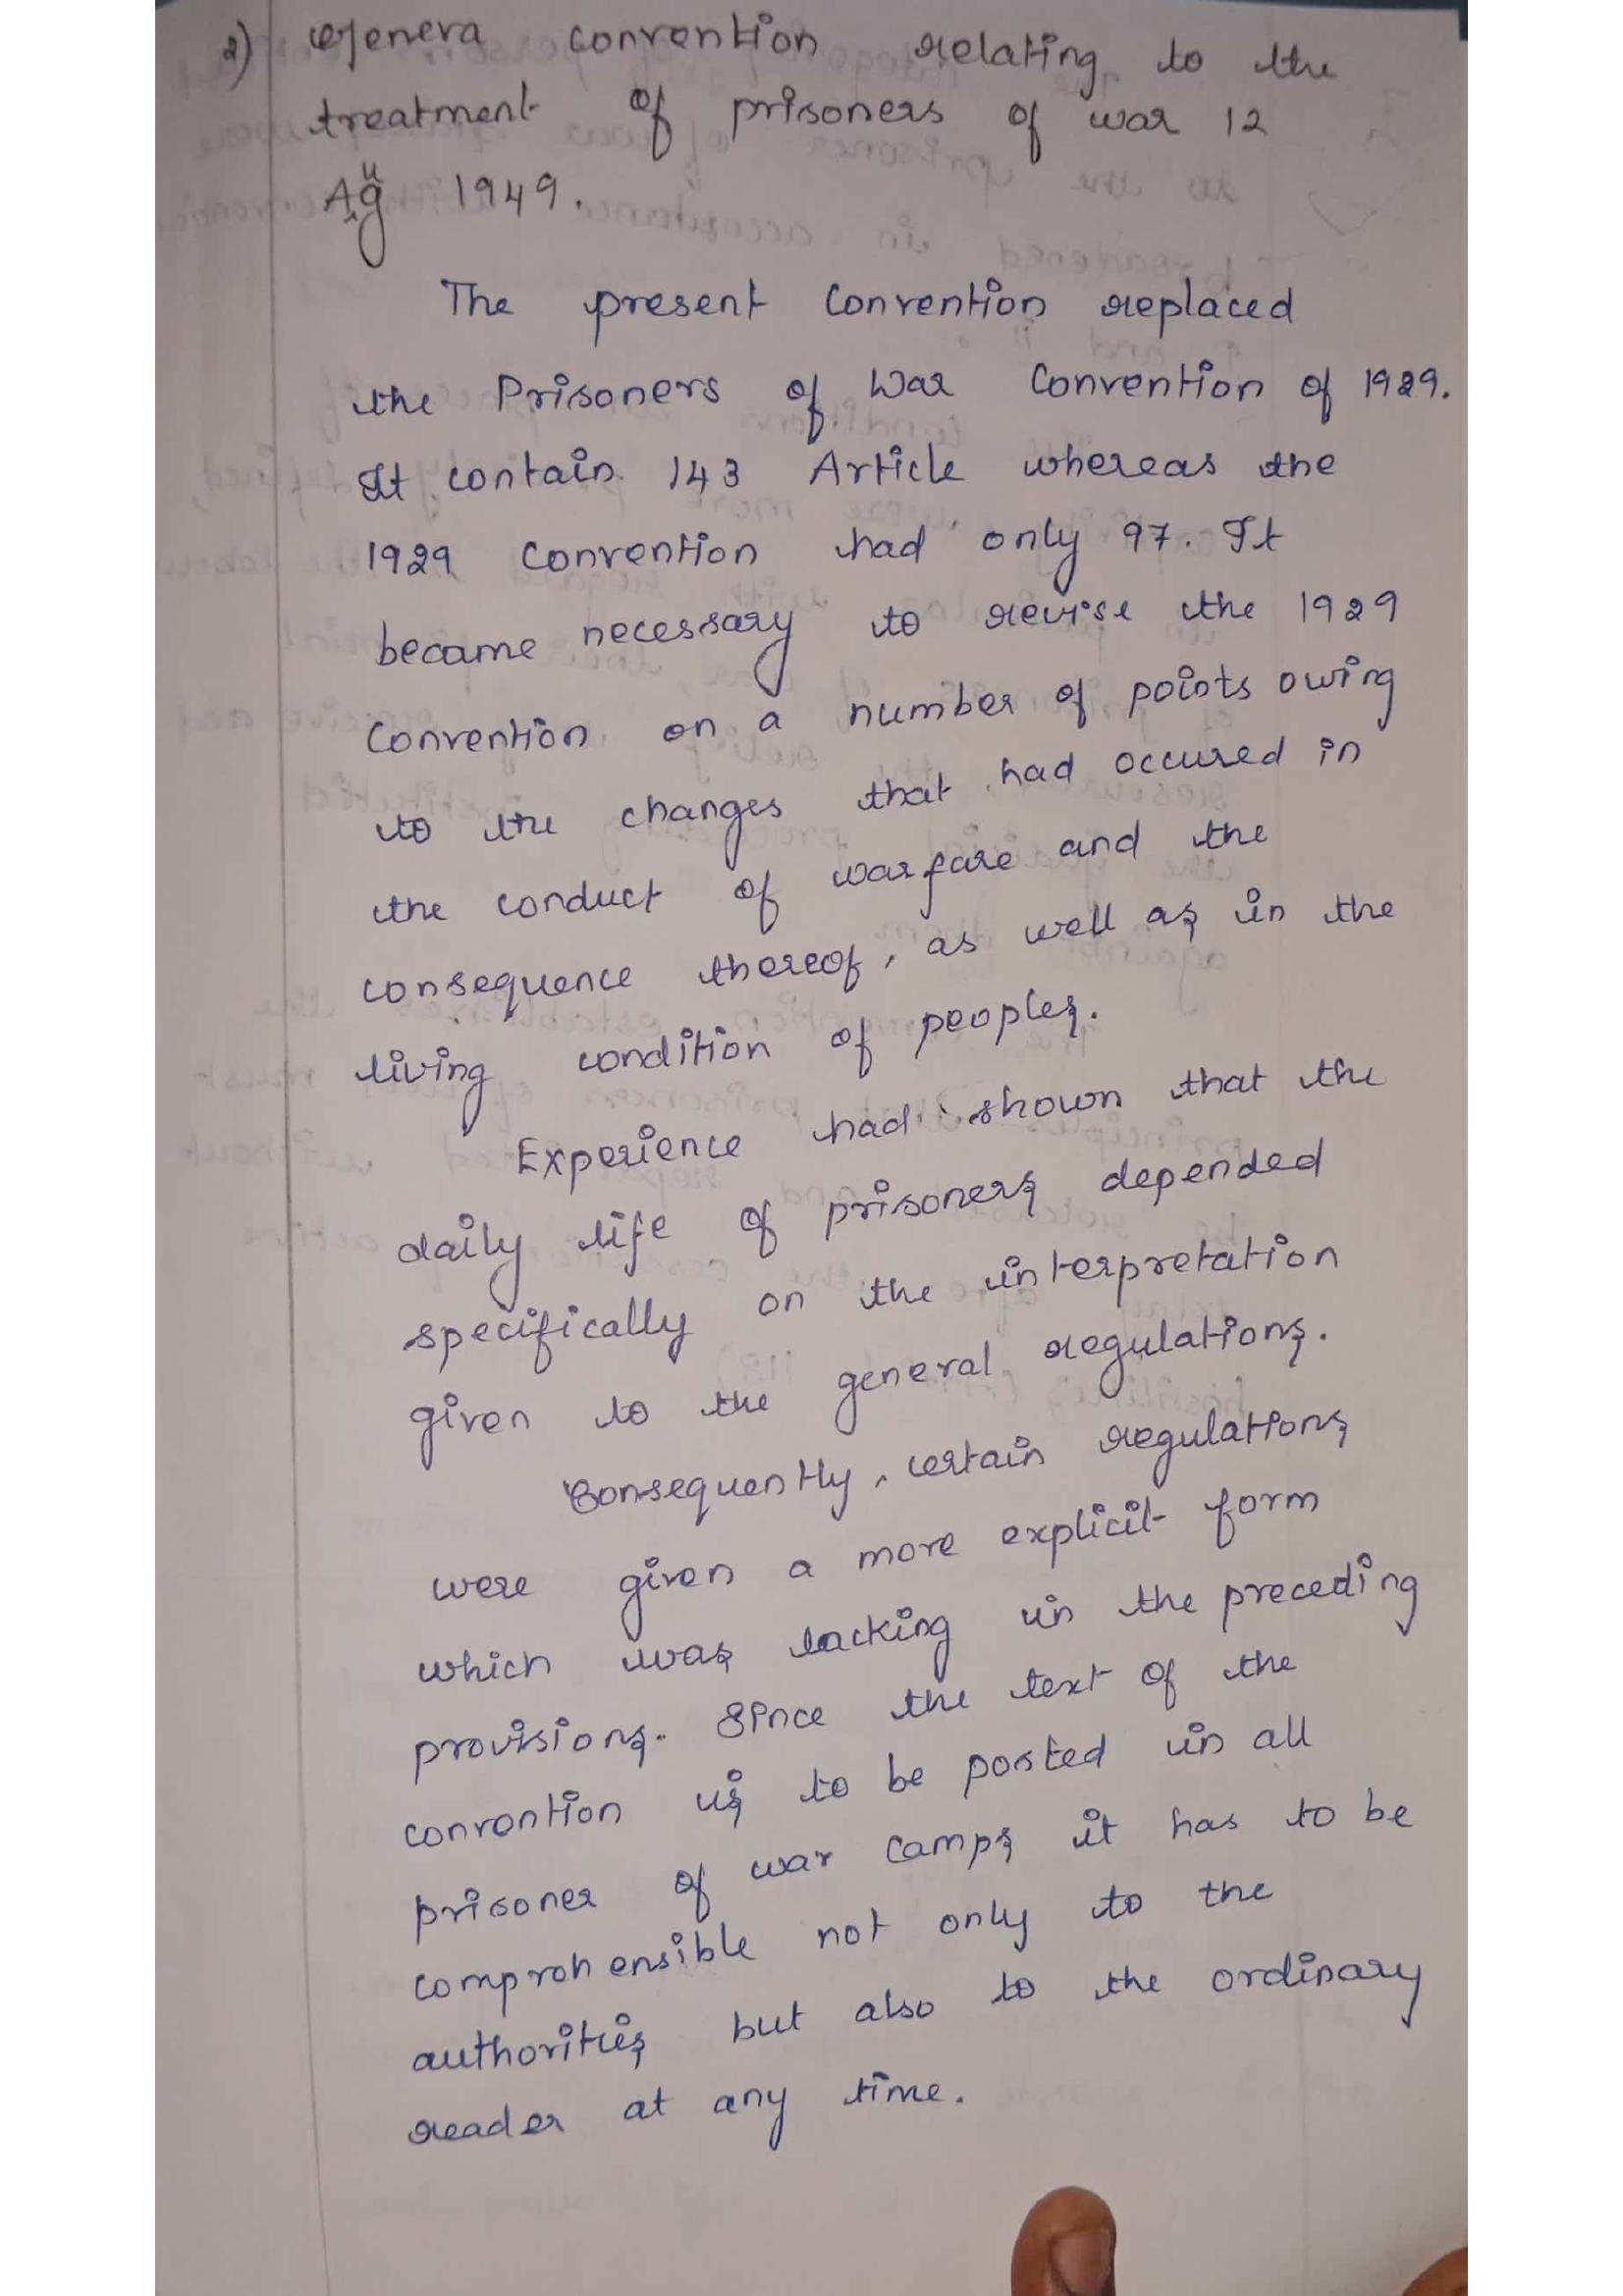 2) Geneva convention relating to the
treatment of prisoners of war 12
Aug 1949.
The present Convention replaced
the Prisoners of War Convention of 1929.
It contain 143 Article whereas the
1929 Convention had only 97. It
became necessary to revise the 1929
Convention on a number of points owing
to the changes that had occured in
the conduct of warfare and the
consequence thereof, as well as in the
living condition of peoples.
Experience had shown that the
daily life of prisoners depended
specifically on the interpretation
given to the general regulations.
Consequently, certain regulations
were given a more explicit form
which was lacking in the preceding
provisions. Since the text of the
convention is to be posted in all
prisoner of war camps it has to be
comprehensible not only to the
authorities but also to the ordinary
reader at any time.